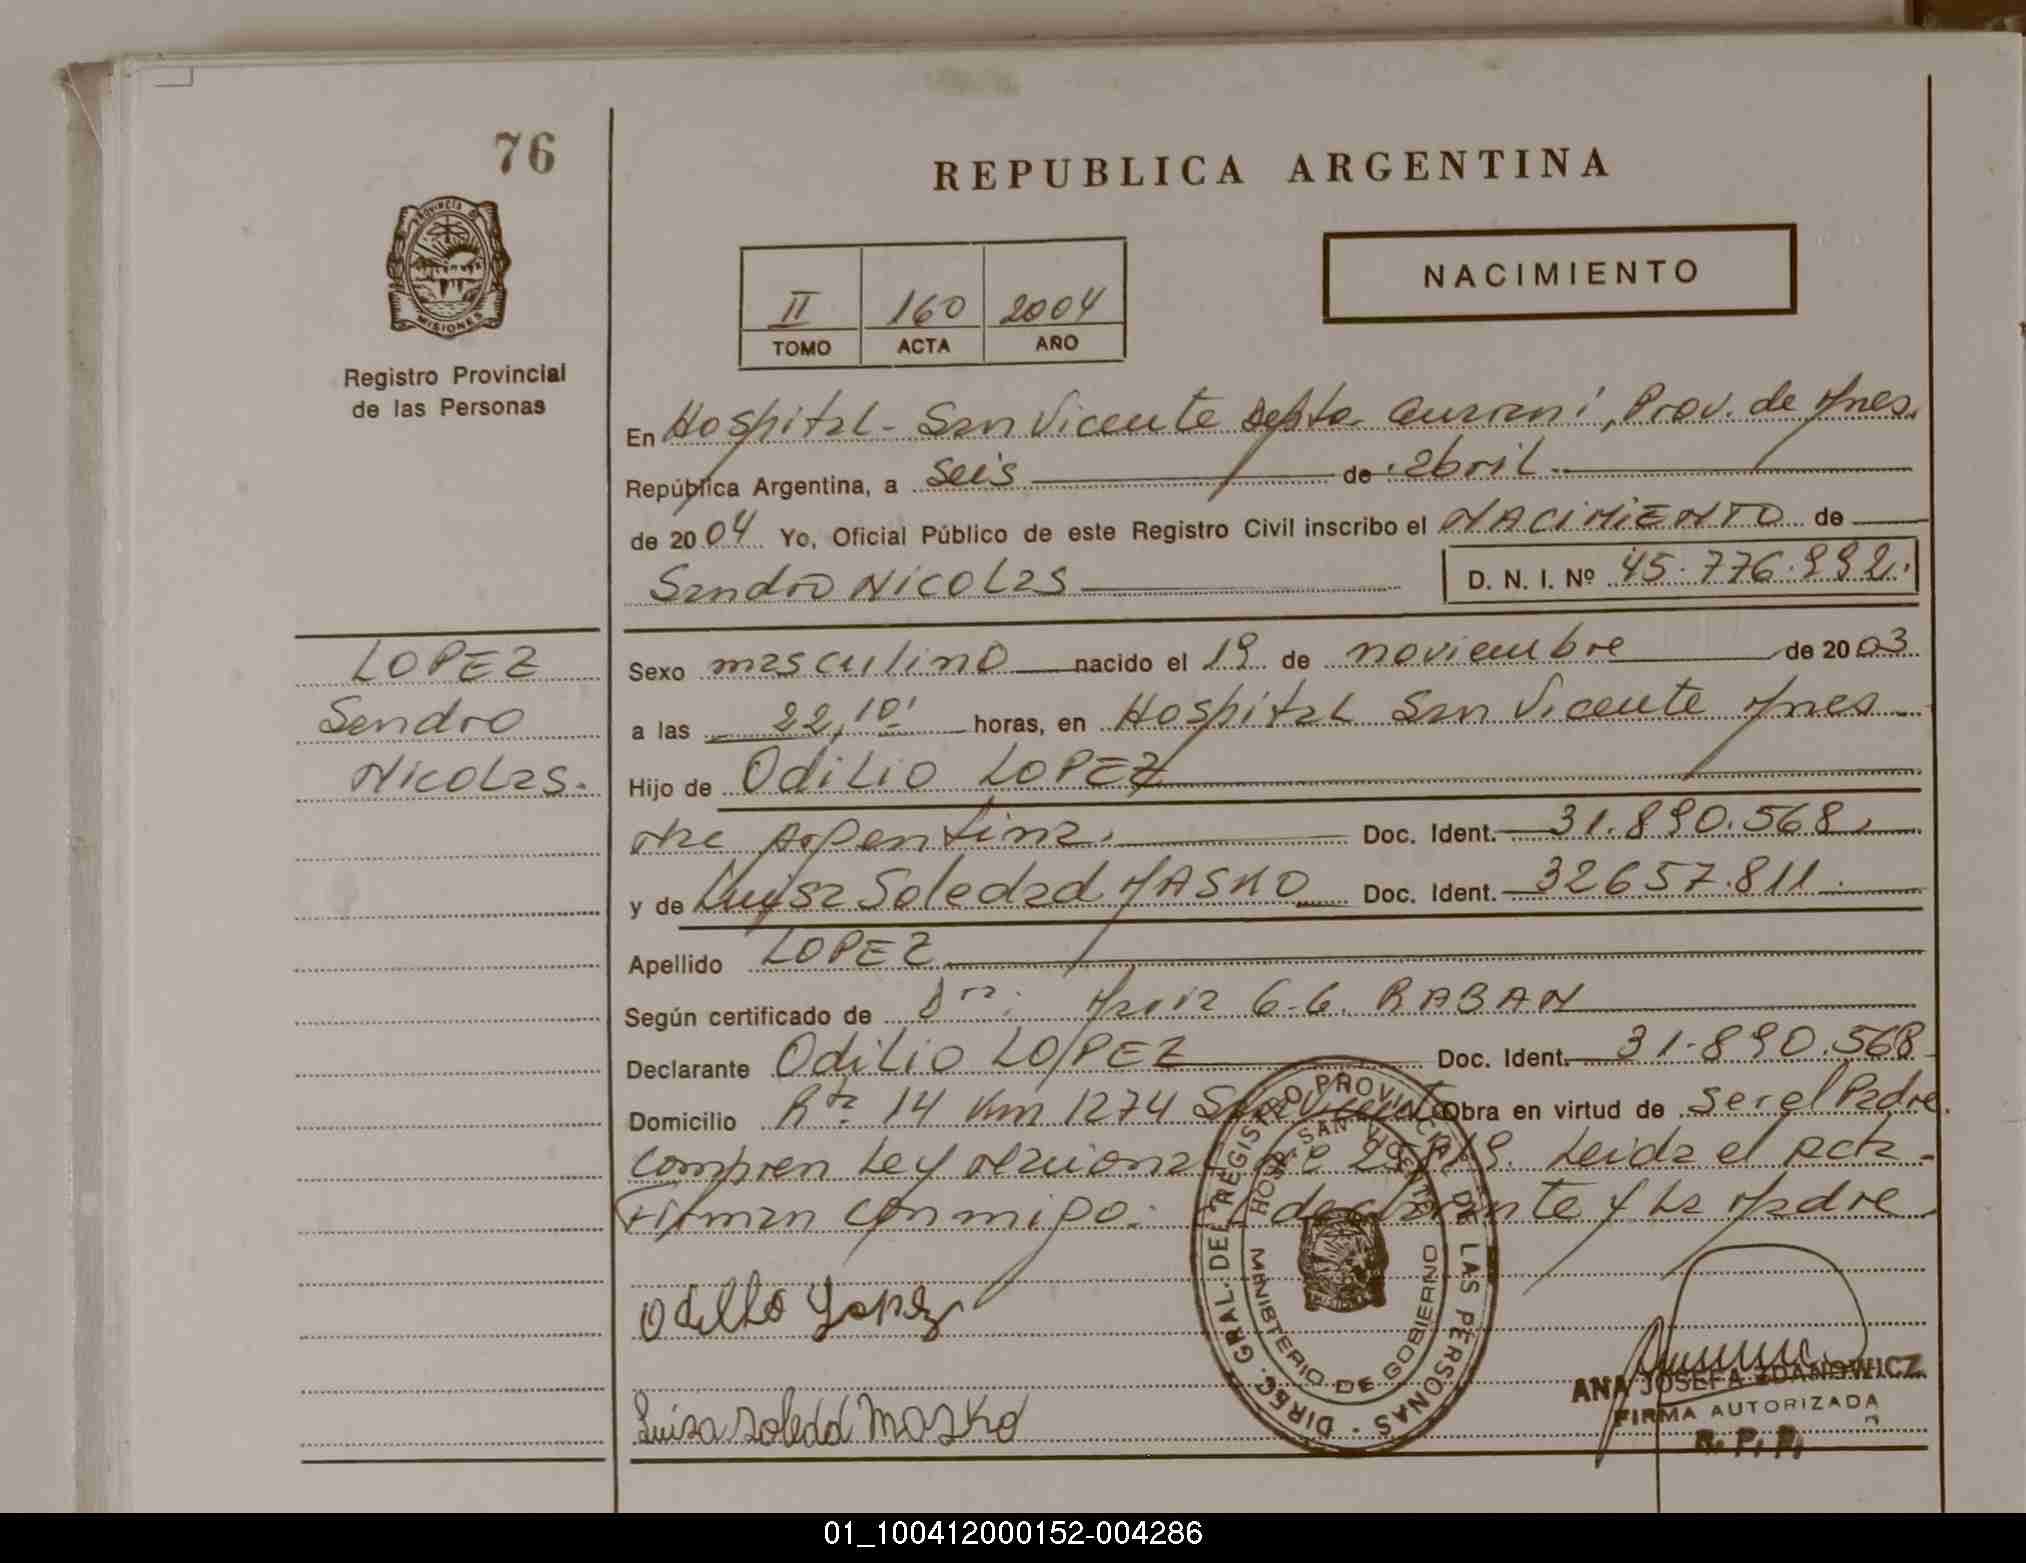 76
REPUBLICA ARGENTINA
NACIMIENTO
II 160 2004
TOMO ACTA AÑO
PROVINCIA DE
MISIONES
Registro Provincial
de las Personas
En Hospital - San Vicente Depto. Guarani, Prov. de Mnes.
República Argentina, a seis de abril
de 2004 Yo, Oficial Público de este Registro Civil inscribo el NACIMIENTO de
Sandro Nicolas D. N. I. Nº 45.776.992.
LOPEZ
Sandro
Nicolas.
Sexo masculino nacido el 19 de noviembre de 2003
a las 22,10' horas, en Hospital San Vicente Mnes
Hijo de Odilio LOPEZ
Nac Argentina. Doc. Ident. 31.890.568.
y de Luisa Soledad MASKO Doc. Ident. 32657.811
Apellido LOPEZ
Según certificado de Dra. Maria G.G. RABAN
Declarante Odilio LOPEZ Doc. Ident. 31.890.568
Domicilio Rta 14 Km 1274 San Vicente Obra en virtud de ser el Padre.
Ley Nacional Leida el acta
Firman conmigo: declarante y la Madre
Odilio Lopez
Luisa Soledad Masko
DIREC. GRAL. DEL REGISTRO PROVINCIAL DE LAS PERSONAS
HOSP. SAN VICENTE
MINISTERIO DE GOBIERNO
ANA JOSEFA ZDANOWICZ
FIRMA AUTORIZADA
R. P. P.
01_100412000152-004286